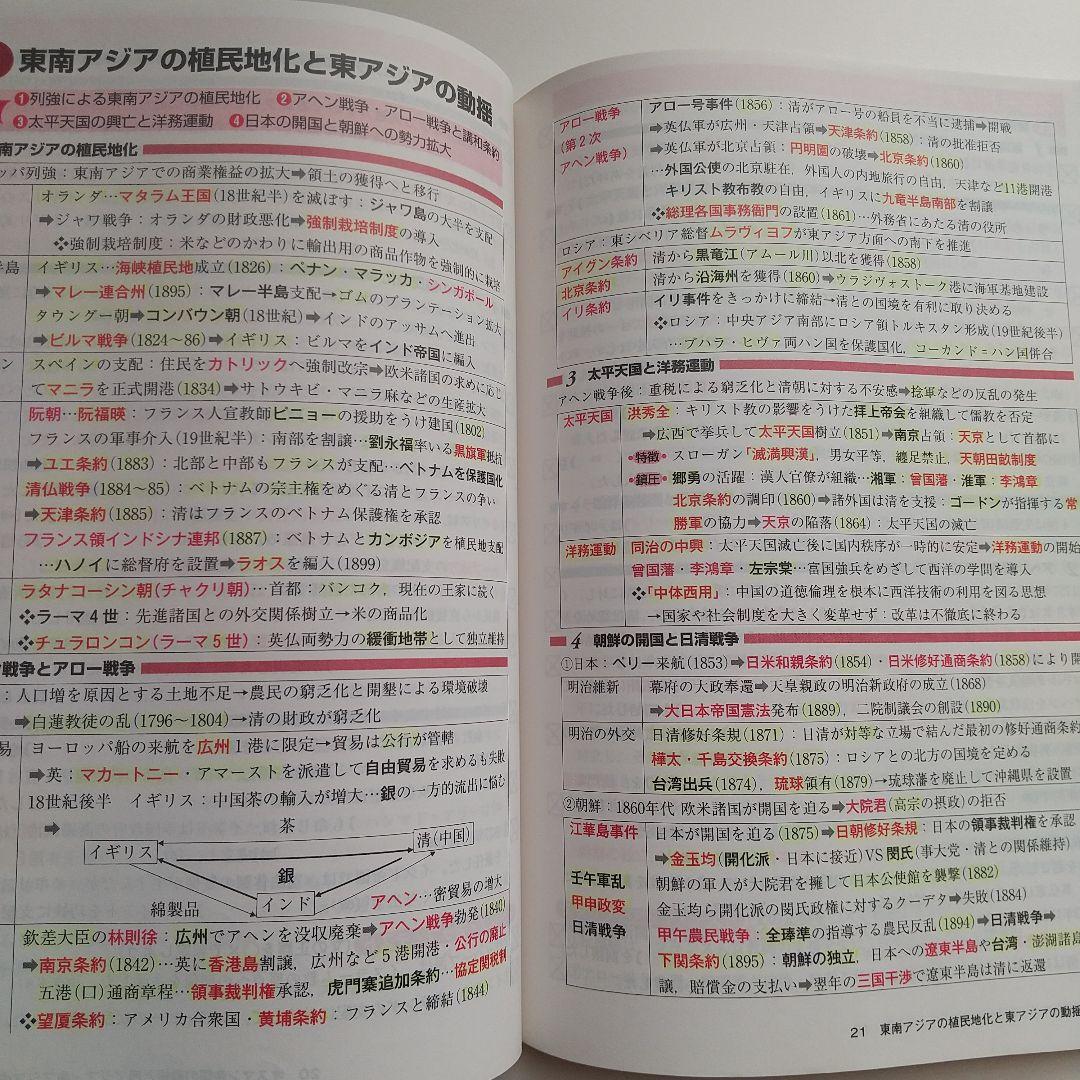 東南アジアの植民地化と東アジアの動揺
❶列強による東南アジアの植民地化 ❷アヘン戦争・アロー戦争と講和条約
❸太平天国の興亡と洋務運動 ❹日本の開国と朝鮮への勢力拡大
南アジアの植民地化
ッパ列強：東南アジアでの商業権益の拡大➡領土の獲得へと移行
オランダ…マタラム王国(18世紀半)を滅ぼす：ジャワ島の大半を支配
➡ジャワ戦争：オランダの財政悪化➡強制栽培制度の導入
❖強制栽培制度：米などのかわりに輸出用の商品作物を強制的に栽培
半島 イギリス…海峡植民地成立(1826)：ペナン・マラッカ・シンガポール
➡マレー連合州(1895)：マレー半島支配→ゴムのプランテーション拡大
タウングー朝→コンバウン朝(18世紀)→インドのアッサムへ進出
➡ビルマ戦争(1824〜86)→イギリス：ビルマをインド帝国に編入
ン スペインの支配：住民をカトリックへ強制改宗→欧米諸国の求めに応じ
てマニラを正式開港(1834)→サトウキビ・マニラ麻などの生産拡大
阮朝…阮福暎：フランス人宣教師ピニョーの援助をうけ建国(1802)
フランスの軍事介入(19世紀半)：南部を割譲…劉永福率いる黒旗軍抵抗
➡ユエ条約(1883)：北部と中部もフランスが支配…ベトナムを保護国化
清仏戦争(1884〜85)：ベトナムの宗主権をめぐる清とフランスの争い
➡天津条約(1885)：清はフランスのベトナム保護権を承認
フランス領インドシナ連邦(1887)：ベトナムとカンボジアを植民地支配
…ハノイに総督府を設置➡ラオスを編入(1899)
ラタナコーシン朝(チャクリ朝)…首都：バンコク，現在の王家に続く
❖ラーマ4世：先進諸国との外交関係樹立→米の商品化
❖チュラロンコン(ラーマ5世)：英仏両勢力の緩衝地帯として独立維持
戦争とアロー戦争
：人口増を原因とする土地不足→農民の窮乏化と開墾による環境破壊
➡白蓮教徒の乱(1796〜1804)→清の財政が窮乏化
易 ヨーロッパ船の来航を広州1港に限定→貿易は公行が管轄
➡英：マカートニー・アマーストを派遣して自由貿易を求めるも失敗
18世紀後半 イギリス：中国茶の輸入が増大…銀の一方的流出に悩む
➡
茶
イギリス 清(中国)
銀
綿製品 インド アヘン…密貿易の増大
欽差大臣の林則徐：広州でアヘンを没収廃棄➡アヘン戦争勃発(1840)
➡南京条約(1842)…英に香港島割譲，広州など5港開港・公行の廃止
五港(口)通商章程…領事裁判権承認，虎門寨追加条約…協定関税制
❖望厦条約：アメリカ合衆国・黄埔条約：フランスと締結(1844)
アロー戦争 アロー号事件(1856)：清がアロー号の船員を不当に逮捕➡開戦
(第2次 ➡英仏軍が広州・天津占領➡天津条約(1858)：清の批准拒否
アヘン戦争) ➡英仏軍が北京占領：円明園の破壊➡北京条約(1860)
…外国公使の北京駐在，外国人の内地旅行の自由，天津など11港開港
キリスト教布教の自由，イギリスに九竜半島南部を割譲
❖総理各国事務衙門の設置(1861)…外務省にあたる清の役所
ロシア：東シベリア総督ムラヴィヨフが東アジア方面への南下を推進
アイグン条約 清から黒竜江(アムール川)以北を獲得(1858)
北京条約 清から沿海州を獲得(1860)➡ウラジヴォストーク港に海軍基地建設
イリ条約 イリ事件をきっかけに締結→清との国境を有利に取り決める
❖ロシア：中央アジア南部にロシア領トルキスタン形成(19世紀後半)
…ブハラ・ヒヴァ両ハン国を保護国化，コーカンド＝ハン国併合
3 太平天国と洋務運動
アヘン戦争後：重税による窮乏化と清朝に対する不安感➡捻軍などの反乱の発生
太平天国 洪秀全：キリスト教の影響をうけた拝上帝会を組織して儒教を否定
➡広西で挙兵して太平天国樹立(1851)➡南京占領：天京として首都に
特徴 スローガン「滅満興漢」，男女平等，纏足禁止，天朝田畝制度
鎮圧 郷勇の活躍：漢人官僚が組織…湘軍：曾国藩・淮軍：李鴻章
北京条約の調印(1860)→諸外国は清を支援：ゴードンが指揮する常
勝軍の協力➡天京の陥落(1864)：太平天国の滅亡
洋務運動 同治の中興：太平天国滅亡後に国内秩序が一時的に安定➡洋務運動の開始
曾国藩・李鴻章・左宗棠…富国強兵をめざして西洋の学問を導入
❖「中体西用」：中国の道徳倫理を根本に西洋技術の利用を図る思想
→国家や社会制度を大きく変革せず：改革は不徹底に終わる
4 朝鮮の開国と日清戦争
①日本：ペリー来航(1853)➡日米和親条約(1854)・日米修好通商条約(1858)により開
明治維新 幕府の大政奉還➡天皇親政の明治新政府の成立(1868)
➡大日本帝国憲法発布(1889)，二院制議会の創設(1890)
明治の外交 日清修好条規(1871)：日清が対等な立場で結んだ最初の修好通商条約
樺太・千島交換条約(1875)：ロシアとの北方の国境を定める
台湾出兵(1874)，琉球領有(1879)→琉球藩を廃止して沖縄県を設置
②朝鮮：1860年代 欧米諸国が開国を迫る➡大院君(高宗の摂政)の拒否
江華島事件 日本が開国を迫る(1875)➡日朝修好条規：日本の領事裁判権を承認
➡金玉均(開化派・日本に接近)VS閔氏(事大党・清との関係維持)
壬午軍乱 朝鮮の軍人が大院君を擁して日本公使館を襲撃(1882)
甲申政変 金玉均ら開化派の閔氏政権に対するクーデタ→失敗(1884)
日清戦争 甲午農民戦争：全琫準の指導する農民反乱(1894)➡日清戦争➡
下関条約(1895)：朝鮮の独立，日本への遼東半島や台湾・澎湖諸島
譲，賠償金の支払い➡翌年の三国干渉で遼東半島は清に返還
21 東南アジアの植民地化と東アジアの動揺